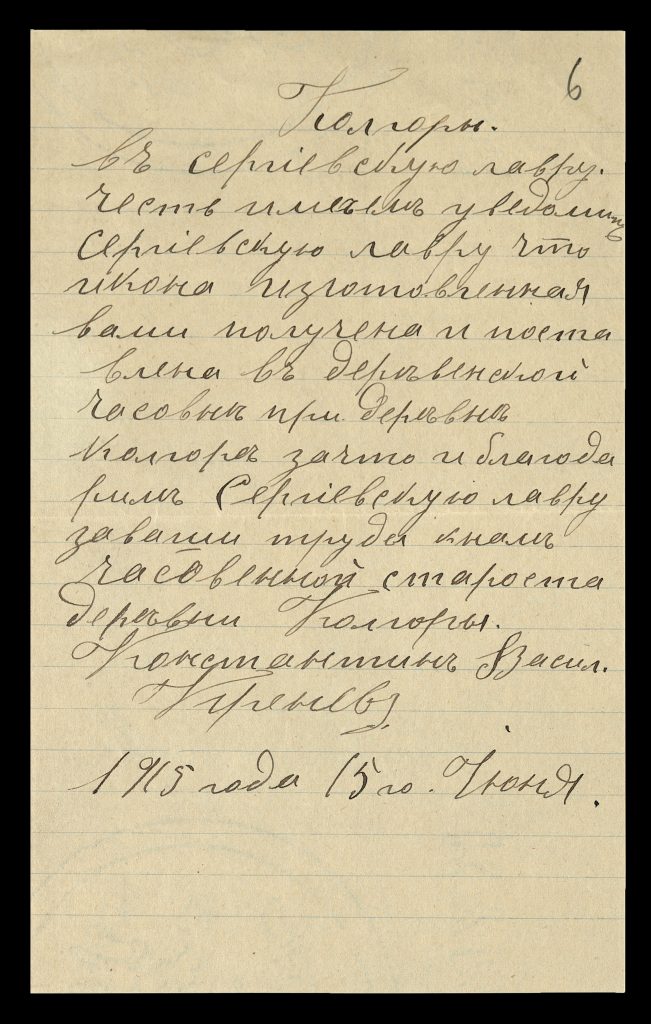 6
Колгоры.
въ сергіевскую лавру.
честь имѣемъ уведомить
Сергіевскую лавру что
икона изготовленная
вами получена и поста
влена въ деръвенской
часовнѣ при деръвнѣ
Колгорѣ зачто и благода
римъ Сергіевскую лавру
заваши труды кнамъ
часовенной староста
деръвни Колгоры.
Константинъ Васил.
1915 года 15 го. Июня.